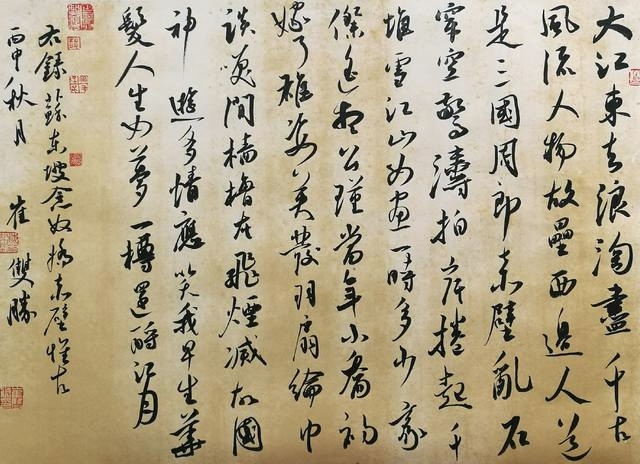 大江東去浪淘盡千古
風流人物故壘西邊人道
是三國周郎赤壁亂石
穿空驚濤拍岸捲起千
堆雪江山如畫一時多少豪
傑遙想公瑾當年小喬初
嫁了雄姿英發羽扇綸巾
談笑間檣櫓灰飛煙滅故國
神遊多情應笑我早生華
髮人生如夢一樽還酹江月
右錄蘇東坡念奴嬌赤壁懷古
丙申秋月 崔雙勝